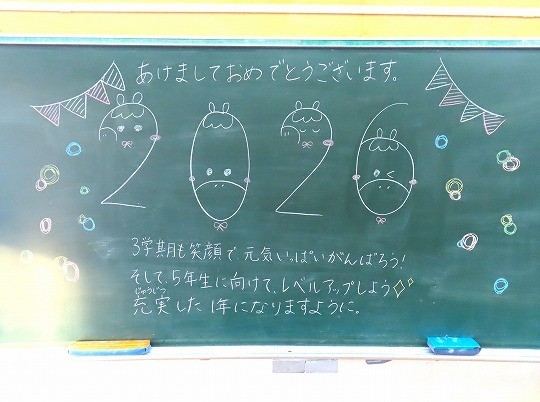 あけましておめでとうございます。
2026
3学期も笑顔で元気いっぱいがんばろう!
そして、5年生に向けて、レベルアップしよう
じゅうじつ
充実した1年になりますように。